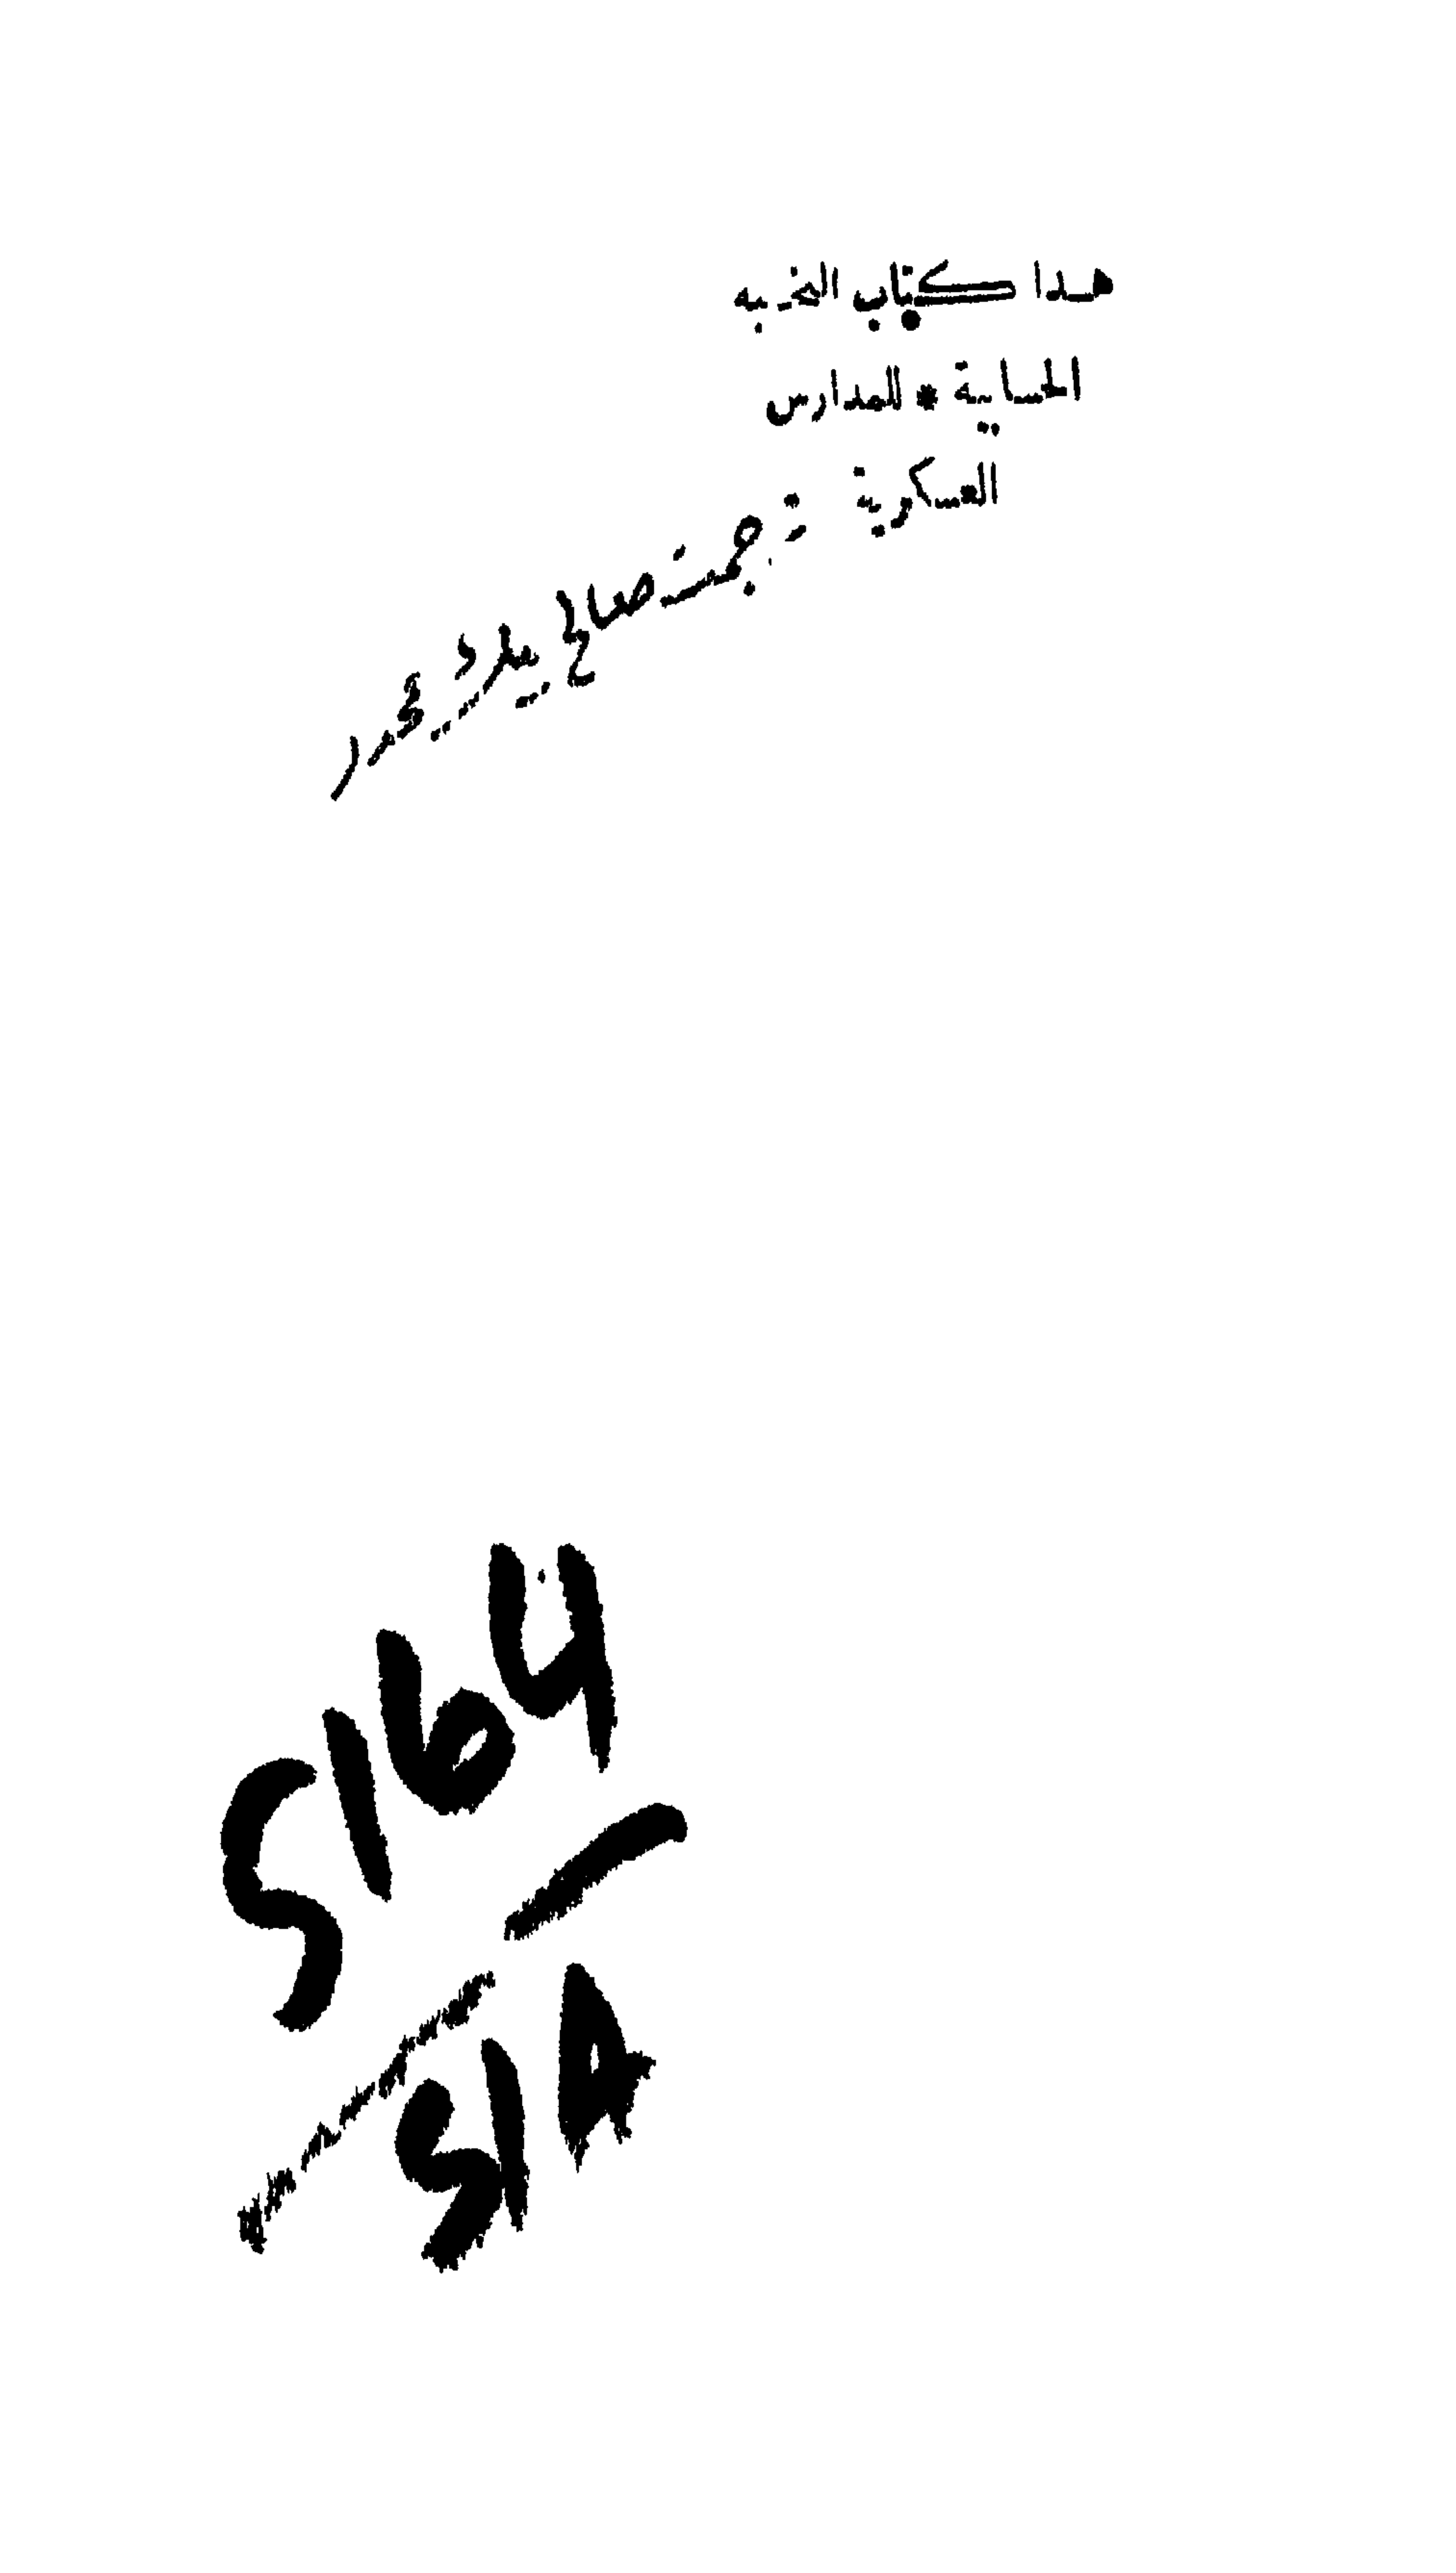 هذا كتاب النخبه
الحسابية * للمدارس
العسكرية
ترجمت صالح
5164
S14